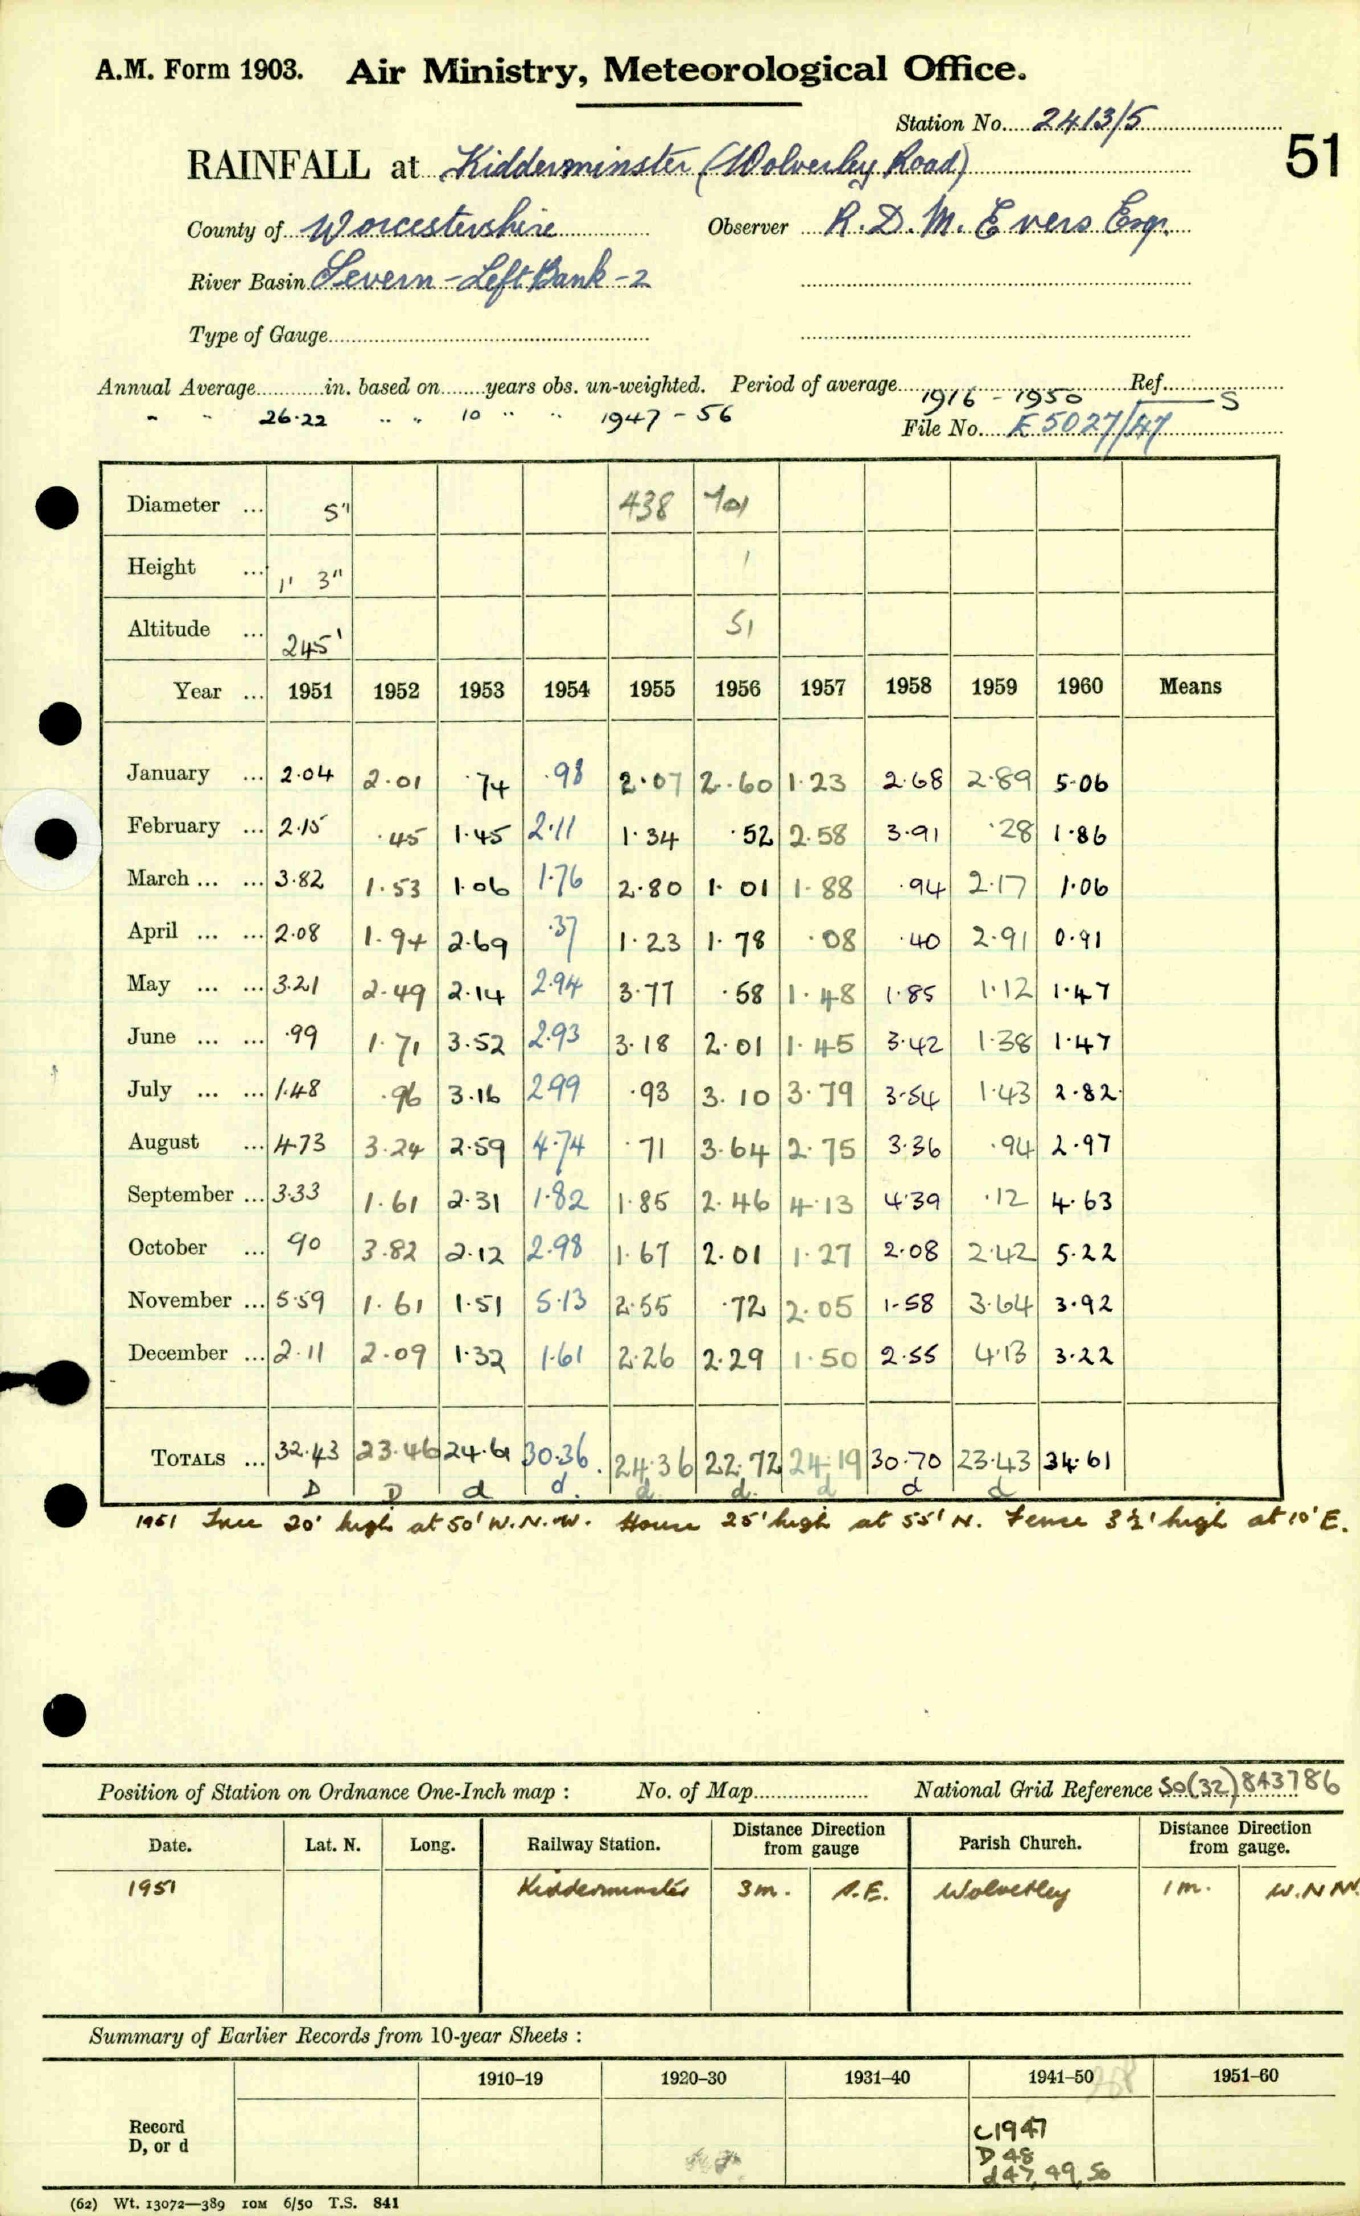 A.M. Form 1903. Air Ministry, Meteorological Office.
Station No. 2413/5
51
RAINFALL at Kidderminster (Wolverley Road)
County of Worcestershire Observer R. D. M. Evers Esqr.
River Basin Severn - Left Bank - 2
Type of Gauge
Annual Average in. based on years obs. un-weighted. Period of average 1916 - 1950 Ref. S
" " 26.22 " " 10 " " 1947 - 56 File No. E 5027/47
Diameter ... 5" 438 701
Height ... 1' 3" 1
Altitude ... 245' 51
Year ... 1951 1952 1953 1954 1955 1956 1957 1958 1959 1960 Means
January ... 2.04 2.01 .74 .98 2.07 2.60 1.23 2.68 2.89 5.06
February ... 2.15 .45 1.45 2.11 1.34 .52 2.58 3.91 .28 1.86
March ... ... 3.82 1.53 1.06 1.76 2.80 1.01 1.88 .94 2.17 1.06
April ... ... 2.08 1.94 2.69 .37 1.23 1.78 .08 .40 2.91 0.91
May ... ... 3.21 2.49 2.14 2.94 3.77 .58 1.48 1.85 1.12 1.47
June ... ... .99 1.71 3.52 2.93 3.18 2.01 1.45 3.42 1.38 1.47
July ... ... 1.48 .96 3.16 2.99 .93 3.10 3.79 3.54 1.43 2.82
August ... 4.73 3.24 2.59 4.74 .71 3.64 2.75 3.36 .94 2.97
September ... 3.33 1.61 2.31 1.82 1.85 2.46 4.13 4.39 .12 4.63
October ... 90 3.82 2.12 2.98 1.67 2.01 1.27 2.08 2.42 5.22
November ... 5.59 1.61 1.51 5.13 2.55 .72 2.05 1.58 3.64 3.92
December ... 2.11 2.09 1.32 1.61 2.26 2.29 1.50 2.55 4.13 3.22
TOTALS ... 32.43 23.46 24.61 30.36 24.36 22.72 24.19 30.70 23.43 34.61
D D d d. d d. d d d
1951 Tree 20' high at 50' W.N.W. House 25' high at 55' N. Fence 3½' high at 10' E.
Position of Station on Ordnance One-Inch map : No. of Map National Grid Reference SO(32)843786
Date. Lat. N. Long. Railway Station. Distance Direction from gauge Parish Church. Distance Direction from gauge.
1951 Kidderminster 3m. S.E. Wolverley 1m. W.N.W.
Summary of Earlier Records from 10-year Sheets :
1910–19 1920–30 1931–40 1941–50 1951–60
Record D, or d
C1947
D 48
d47, 49, 50
(62) Wt. 13072—389 10M 6/50 T.S. 841